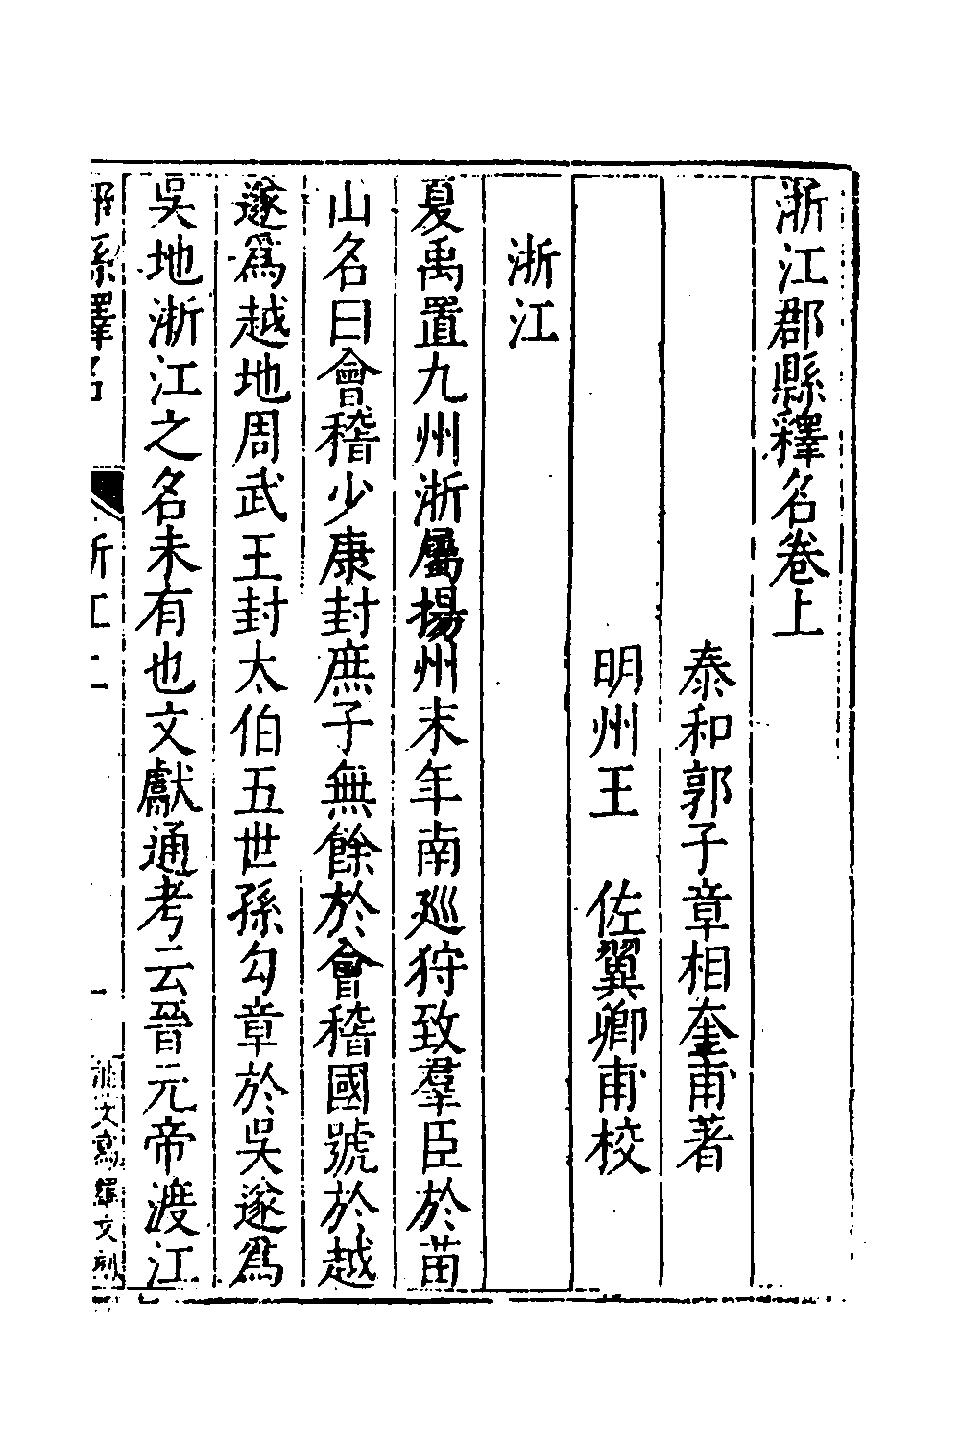 浙江郡縣釋名卷上
泰和郭子章相奎甫著
明州王　佐翼卿甫校
浙江
夏禹置九州浙屬揚州末年南廵狩致羣臣於苗
山名曰會稽少康封庶子無餘於會稽國號於越
遂爲越地周武王封太伯五世孫勾章於吳遂爲
吳地浙江之名未有也文獻通考云晉元帝渡江
郡縣釋名
浙江上
一